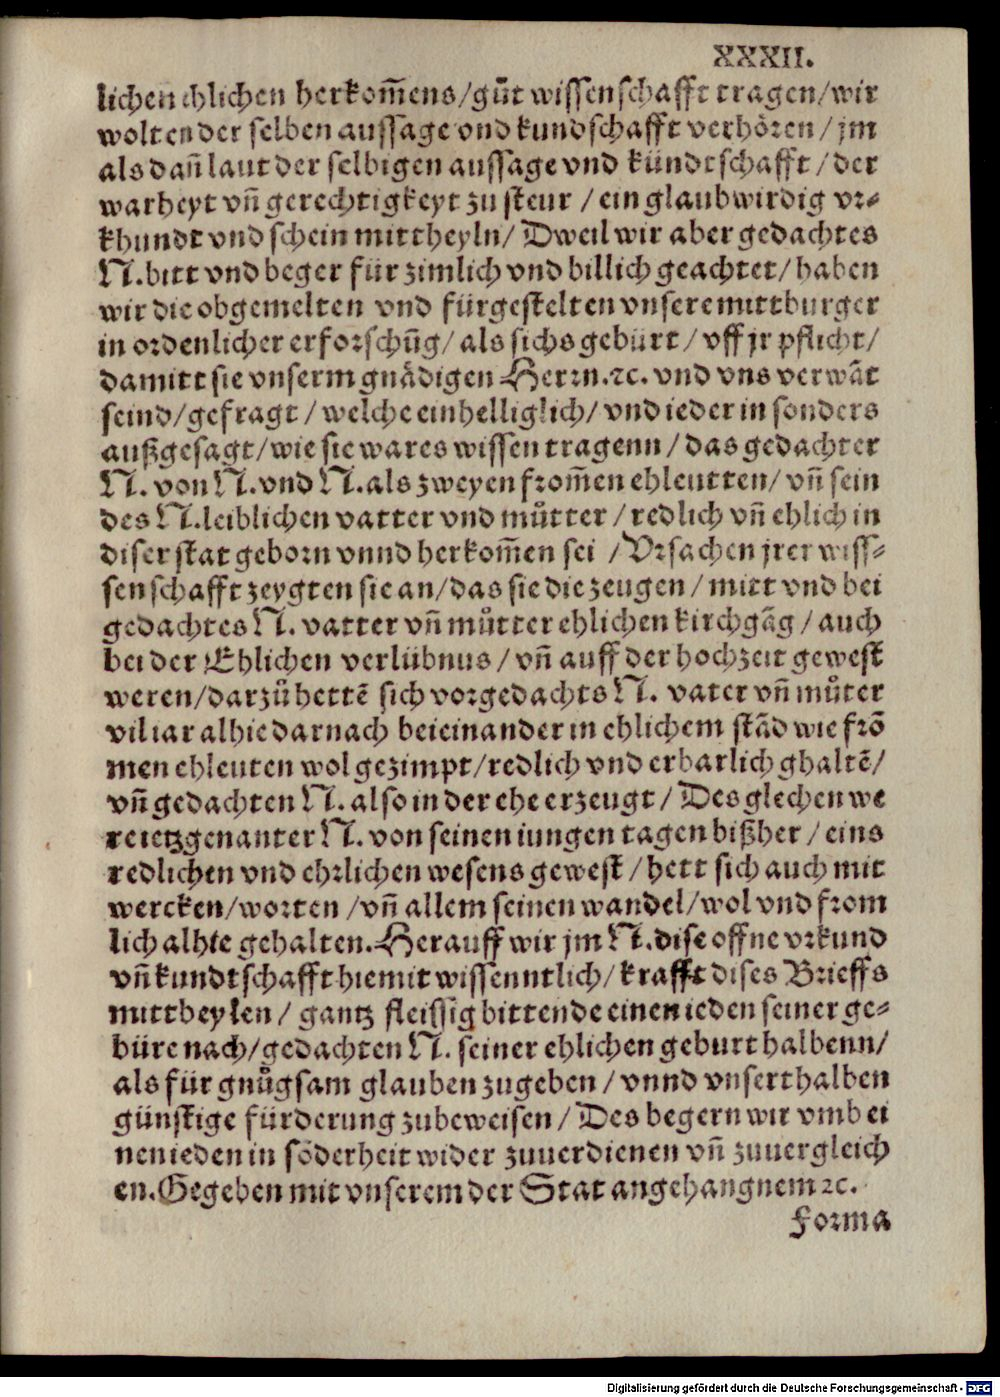 XXXII.
lichen ehlichen herkom̃ens/gũt wissenschafft tragen/wir
wolten der selben aussage vnd kundschafft verhören/jm
als dañ laut der selbigen aussage vnd kündtschafft/der
warheyt vñ gerechtigkeyt zu steur/ein glaubwirdig vr⸗
khundt vnd schein mittheyln/Dweil wir aber gedachtes
N.bitt vnd beger für zimlich vnd billich geachtet/haben
wir die obgemelten vnd fürgestelten vnsere mittburger
in ordenlicher erforschũg/als sichs gebürt/vff jr pflicht/
damitt sie vnserm gnädigen Herrn.ꝛc. vnd vns verwãt
seind/gefragt/welche einhelliglich/vnd ieder in sonders
außgesagt/wie sie wares wissen tragenn/das gedachter
N. von N.vnd N.als zweyen from̃en ehleutten/vñ sein
des N.leiblichen vatter vnd můtter/redlich vñ ehlich in
diser stat geborn vnnd herkom̃en sei/Vrsachen jrer wiss⸗
senschafft zeygten sie an/das sie die zeugen/mitt vnd bei
gedachtes N. vatter vñ můtter ehlichen kirchgãg/auch
bei der Ehlichen verlübnus/vñ auff der hochzeit gewest
weren/darzů hettẽ sich vorgedachts N. vater vñ můter
vil iar alhie darnach beieinander in ehlichem stãd wie frõ
men ehleuten wol gezimpt/redlich vnd erbarlich ghaltẽ/
vñ gedachten N. also in der ehe erzeugt/Des glechen we
re ietzgenanter N. von seinen iungen tagen bißher/eins
redlichen vnd ehrlichen wesens gewest/hett sich auch mit
wercken/worten/vñ allem seinen wandel/wol vnd from
lich alhie gehalten.Herauff wir jm N.dise offne vrkund
vñ kundtschafft hiemit wissenntlich/krafft dises Brieffs
mittheylen/gantz fleissig bittende einen ieden seiner ge⸗
büre nach/gedachten N. seiner ehlichen geburt halbenn/
als für gnůgsam glauben zugeben/vnnd vnserthalben
günstige fürderung zubeweisen/Des begern wir vmb ei
nen ieden in sõderheit wider zuuerdienen vñ zuuergleich
en.Gegeben mit vnserem der Stat angehangnem ꝛc.
Forma
Digitalisierung gefördert durch die Deutsche Forschungsgemeinschaft - DFG